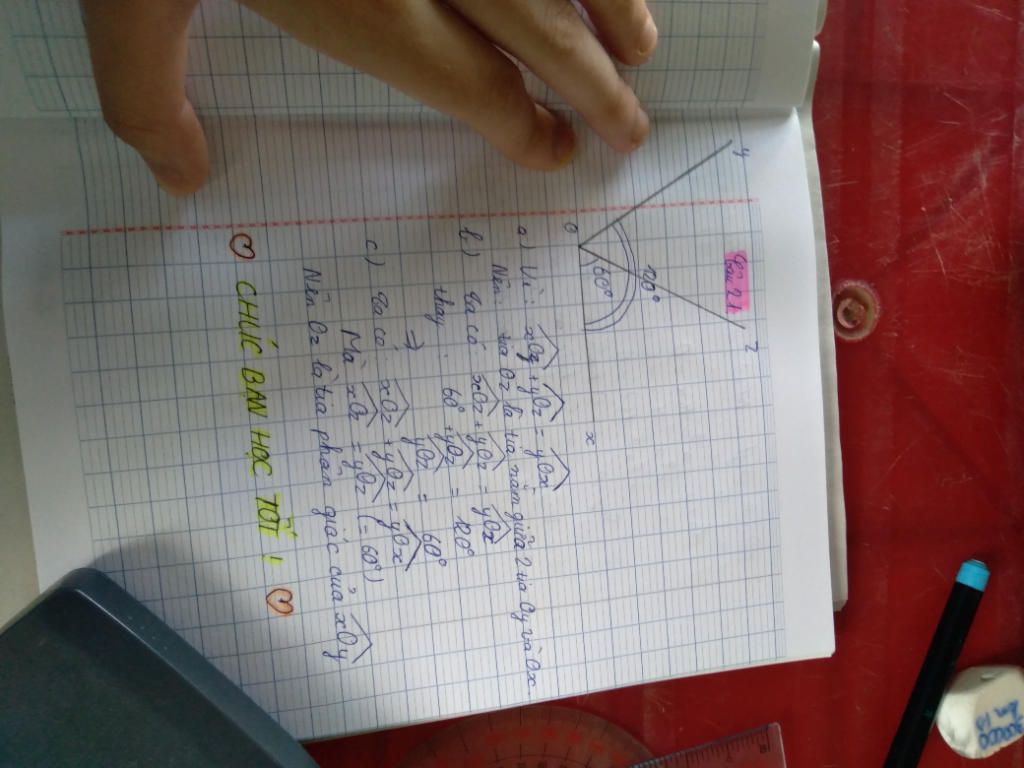 Câu 21
y
z
120°
60°
O
x
a) Vì: xOz + yOz = yOx
Nên: tia Oz là tia nằm giữa 2 tia Oy và Ox.
b) Ta có: xOz + yOz = yOx
thay: 60° + yOz = 120°
⇒ yOz = 60°
c) Ta có: xOz + yOz = yOx
Mà xOz = yOz (= 60°)
Nên Oz là tia phân giác của xOy
♡ CHÚC BẠN HỌC TỐT! ♡